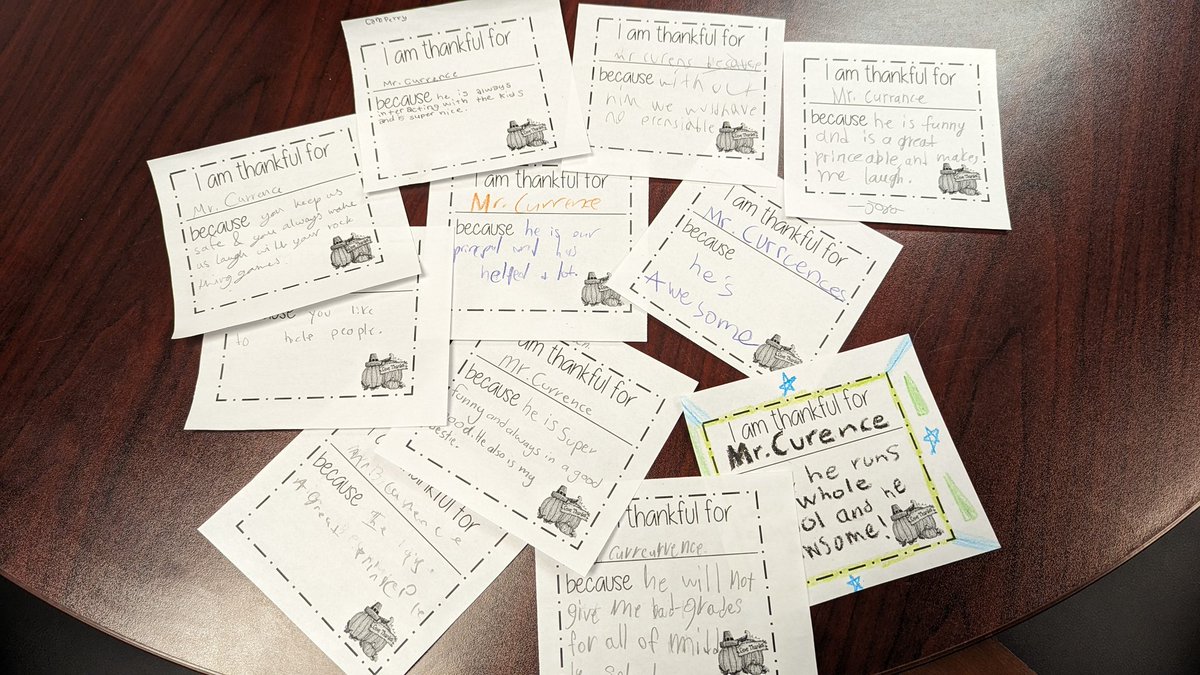 Cam Perry
I am thankful for
Mr. Currence
because he is always
interacting with the kids
and is super nice.
I am thankful for
mr curens because
because with out
him we wuld have
no prensiable
I am thankful for
Mr. Currance
because he is funny
and is a great
princeable, and makes
me laugh.
I am thankful for
Mr. Currence
because you keep us
safe & you always make
us laugh will your rock
thing games.
I am thankful for
Mr. Currence
because he is our
principal and has
helped a lot.
I am thankful for
Mr. Currcences
because
he's
Awesome
you like
to help people.
I am thankful for
Mr. Currence
because he is Super
funny and always in a good
He also is my
bestie.
I am thankful for
Mr. Curence
he runs
whole
ol and he
wsome!
thankful for
because
A great
thankful for
Currcurrence
because he will not
give me bad grades
for all of midd